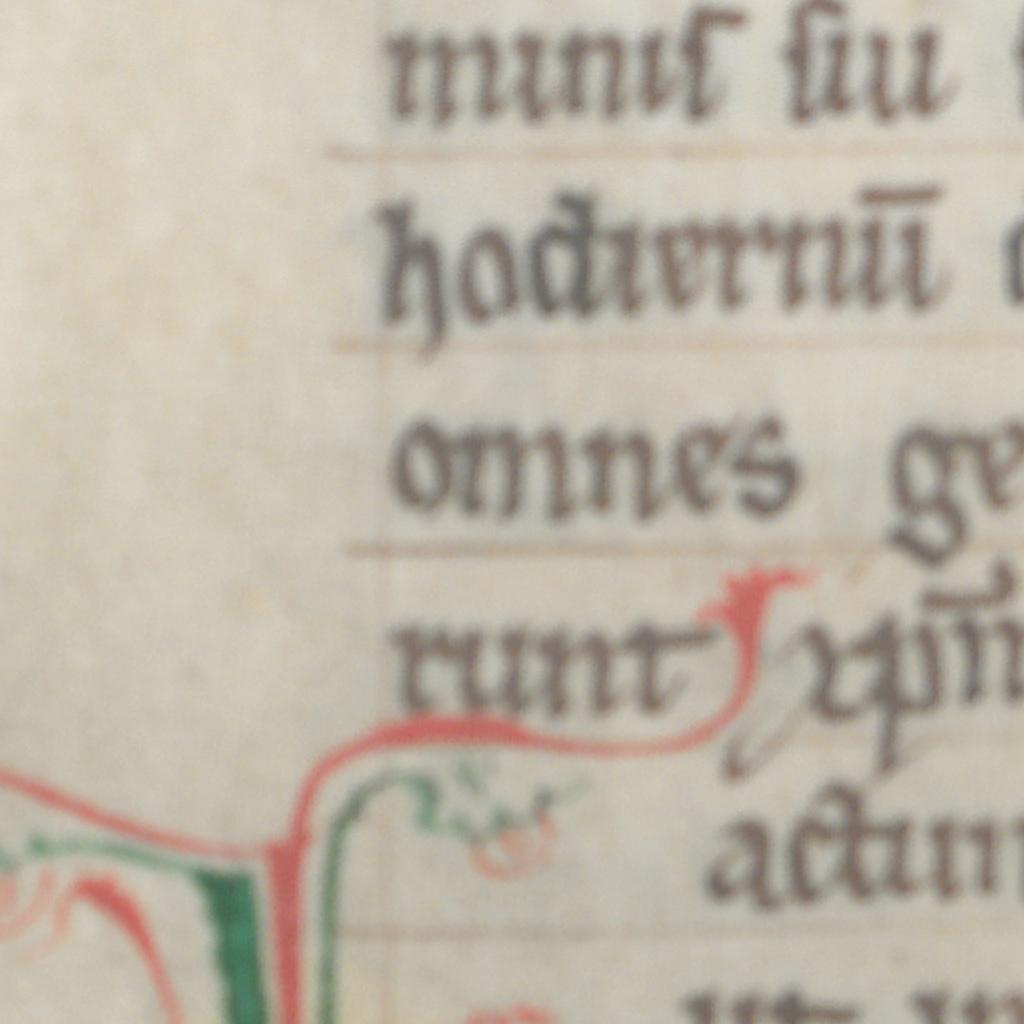 minis siu
hodiernū
omnes ge
runt xp̄n
actum